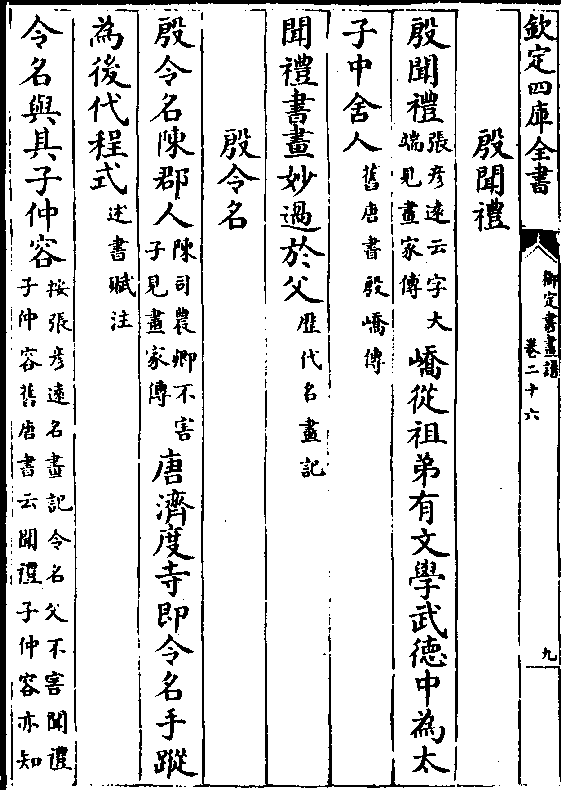 欽定四庫全書
御定書畫譜
卷二十六
九
殷聞禮
殷聞禮張彥遠云字大端見畫家傳嶠從祖弟有文學武德中為太
子中舍人舊唐書殷嶠傳
聞禮書畫妙過於父歷代名畫記
殷令名
殷令名陳郡人陳司農卿不害子見畫家傳唐濟度寺即令名手蹤
為後代程式述書賦注
令名與其子仲容按張彥遠名畫記令名父不害聞禮子仲容舊唐書云聞禮子仲容亦知